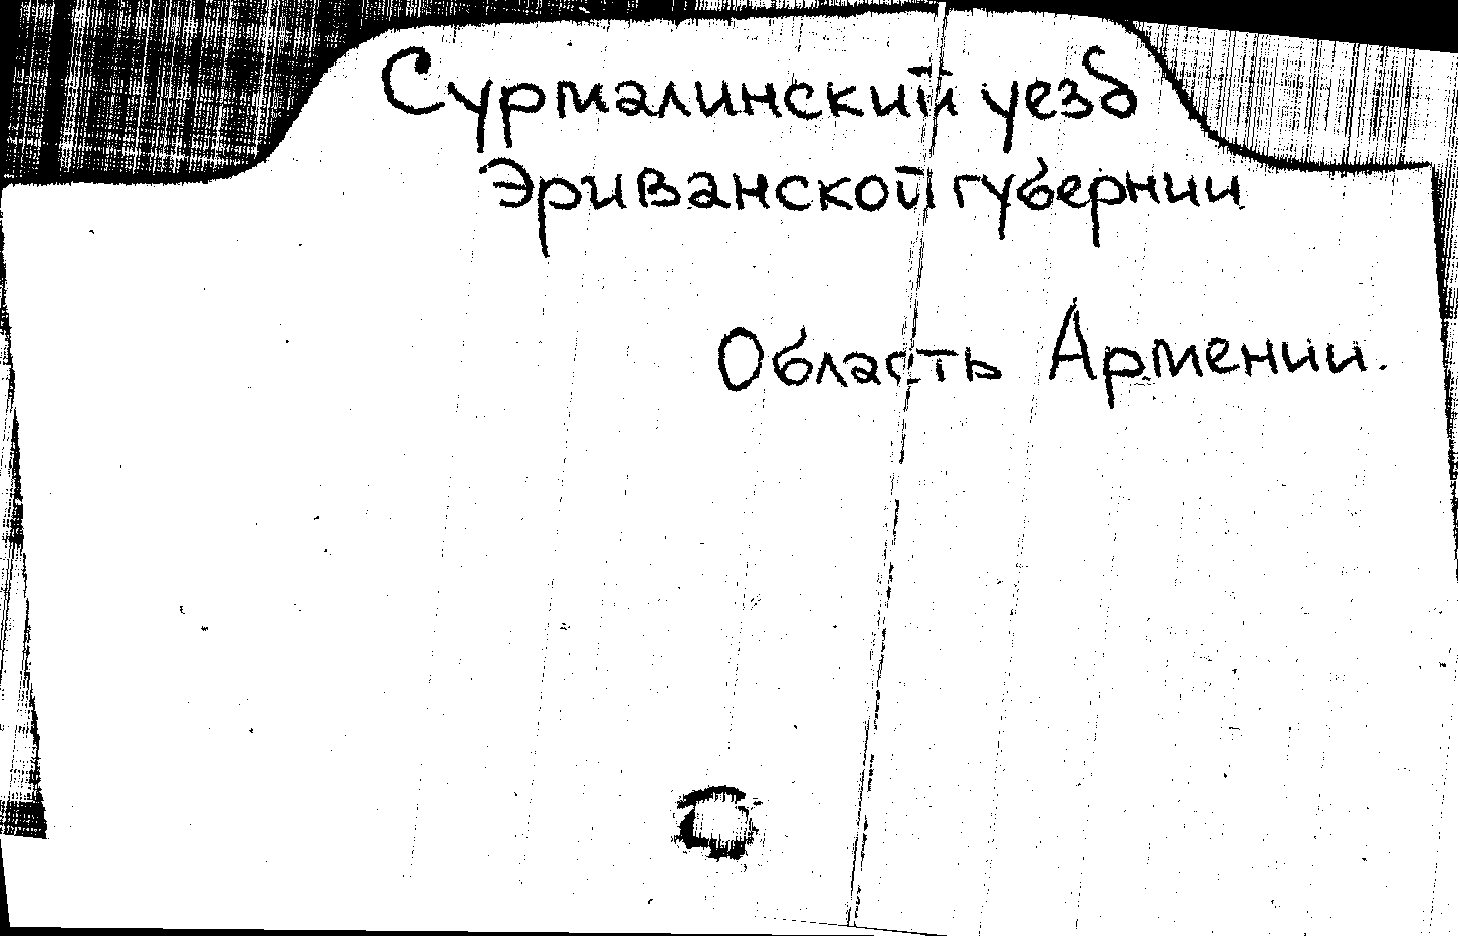 Сурмалинский уезд
Эриванской губернии
Область Армении.